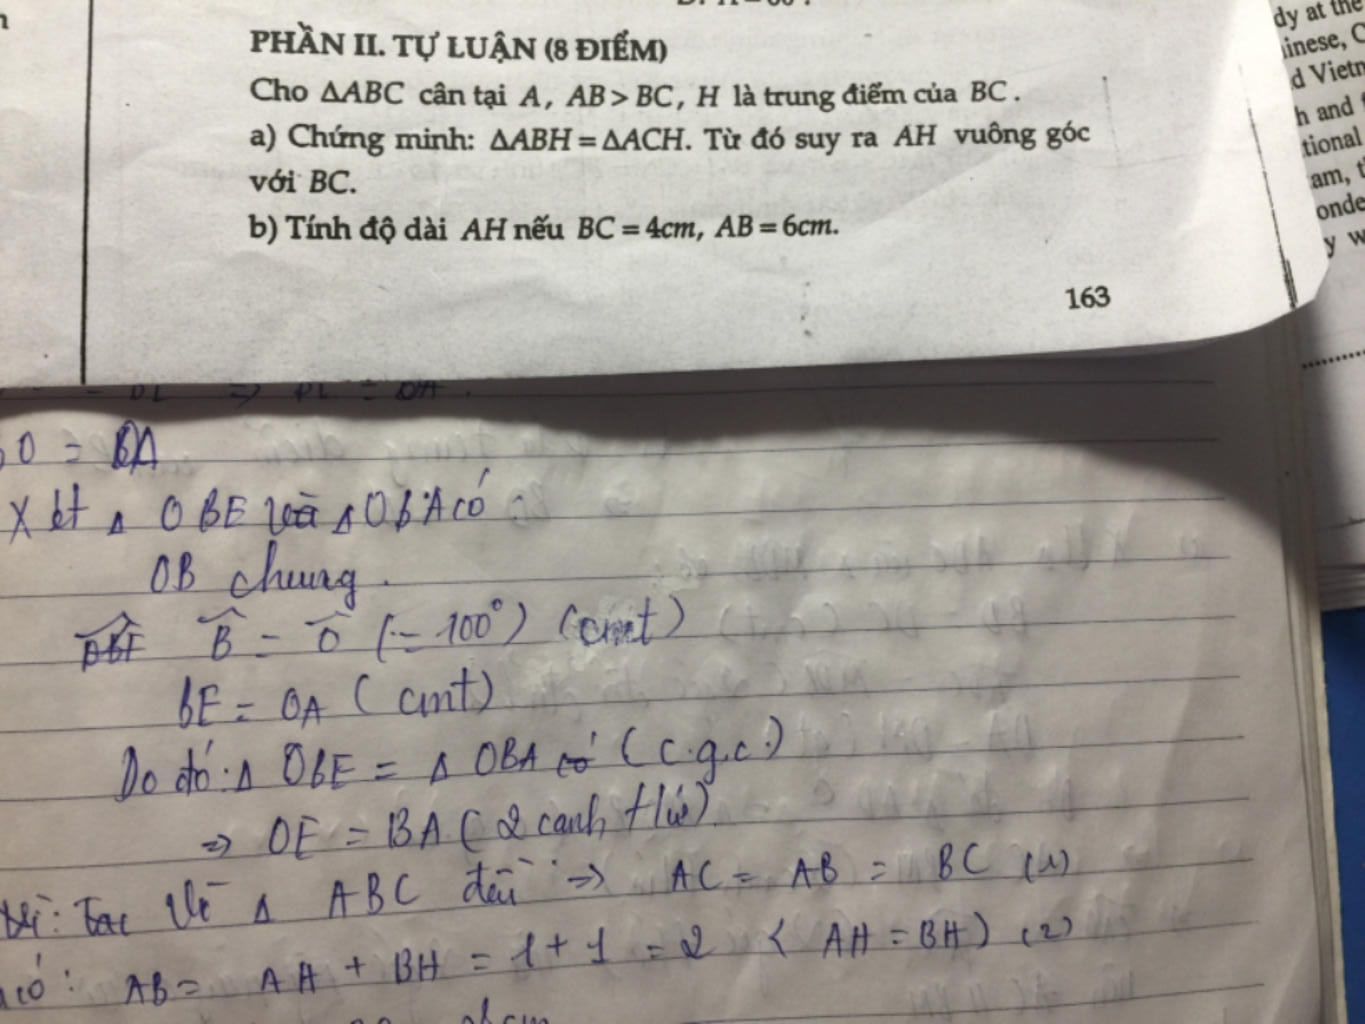 PHẦN II. TỰ LUẬN (8 ĐIỂM)
Cho ΔABC cân tại A, AB > BC, H là trung điểm của BC.
a) Chứng minh: ΔABH = ΔACH. Từ đó suy ra AH vuông góc
với BC.
b) Tính độ dài AH nếu BC = 4cm, AB = 6cm.
163
dy at the
inese, C
d Vietn
h and
tional
am, t
onde
y w
O = DA
Xét Δ OBE và Δ OBA có
OB chung.
B̂ = Ô (= 100°) (cmt)
BE = OA (cmt)
Do đó: Δ OBE = Δ OBA có (c.g.c)
=> OE = BA (2 cạnh t/ứ)
Vẽ Δ ABC đều => AC = AB = BC (1)
có: AB = AH + BH = 1 + 1 = 2 (AH = BH) (2)